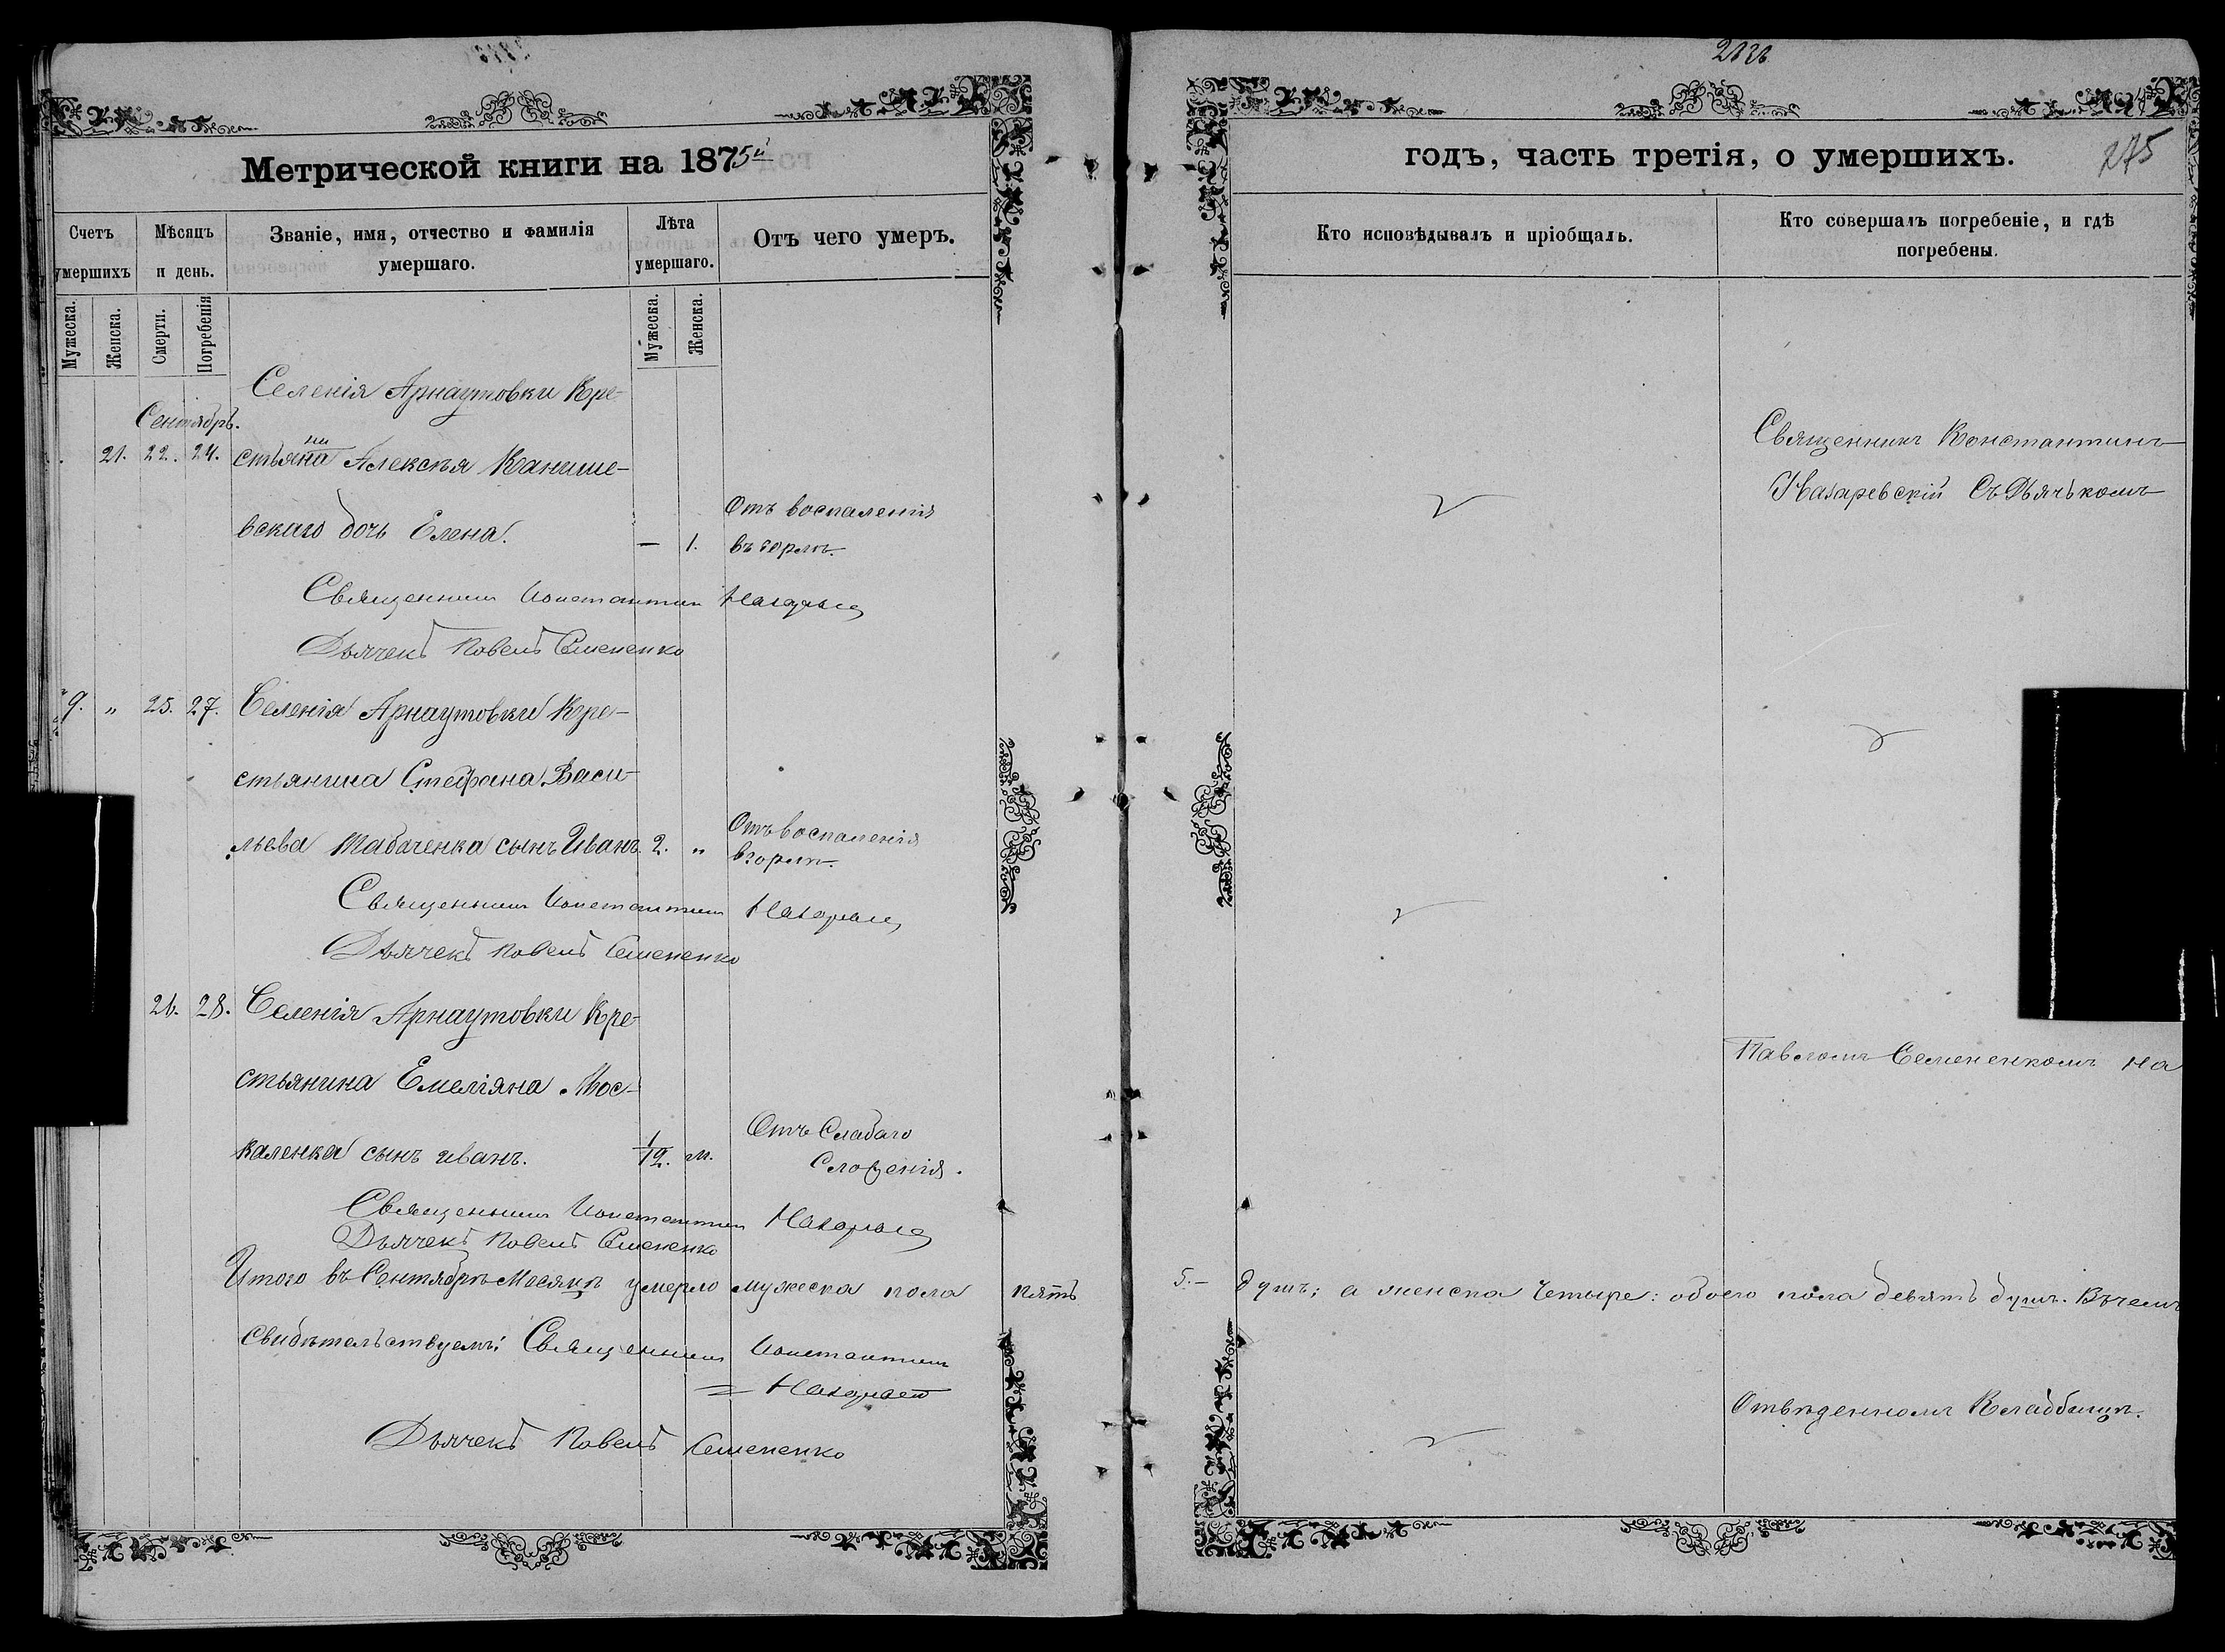 Метрической книги на 1875й
Счетъ умершихъ
Мѣсяцъ и день.
Званіе, имя, отчество и фамилія умершаго.
Лѣта умершаго.
Отъ чего умеръ.
Мужеска.
Женска.
Смерти.
Погребенія
Мужеска.
Женска.
Селенія Арнаутовки Кре-
Сентябрь.
21. 22. 24. стьянина Алексѣя Канише-
вскаго дочь Елена. — 1.
Отъ воспаленія
въ горлѣ.
Священникъ Константинъ
Дьячекъ Павелъ Семененко
9. „ 25. 27. Селенія Арнаутовки Кре-
стьянина Стефана Васи-
льева Табаченка сынъ Иванъ. 2. „
Отъ воспаленія
в горлѣ.
Священникъ Константинъ
Дьячекъ Павелъ Семененко
26. 28. Селенія Арнаутовки Кре-
стьянина Емеліяна Мос-
каленка сынъ иванъ. 1/12. м.
Отъ Слабаго
Сложенія.
Священникъ Константинъ
Дьячекъ Павелъ Семененко
Итого въ Сентябрѣ Месяцѣ умерло мужеска пола пять
Свидѣтельствуемъ: Священникъ Константинъ
Дьячекъ Павелъ Семененко
годъ, часть третія, о умершихъ.
275
Кто исповѣдывалъ и пріобщалъ.
Кто совершалъ погребеніе, и гдѣ погребены.
Священникъ Константинъ
Назаревскій Съ Дьячькомъ
Павломъ Семененкомъ на
5.— душъ; а женска Четыре: обоего пола девять душъ. Въ чемъ
Отвѣденномъ Кладбищѣ.